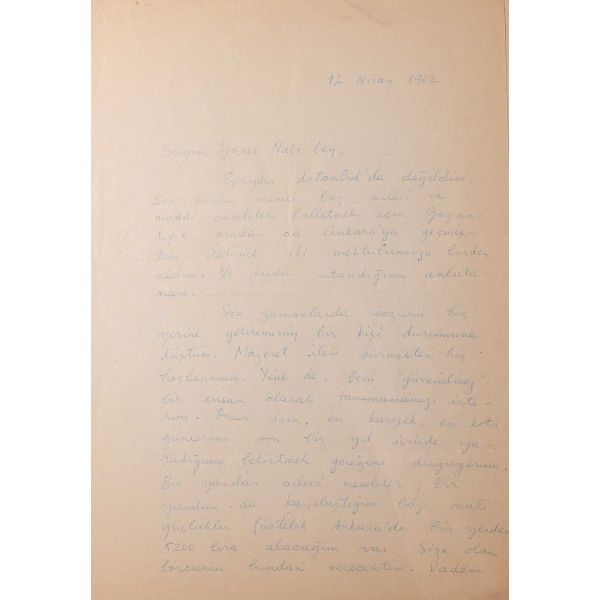 12 Nisan 1962
Sayın Yaşar Nabi Bey,
Epeydir İstanbul'da değildim.
Son derece önemli bazı ailevi ve
maddi meseleleri halletmek için Gazian-
tep'e oradan da Ankara'ya geçmiş-
tim. Gelince iki mektubunuzu birden
aldım. Ne kadar utandığımı anlata-
mam.
Son zamanlarda sözünü hiç
yerine getirememiş bir kişi durumuna
düştüm. Mazeret ileri sürmekten hiç
hoşlanmam. Yine de, beni "güvenilmez"
bir insan olarak tanımamanızı iste-
rim. Onun için, en karışık, en kötü
günlerimi son bir yıl içinde ya-
şadığımı belirtmek gereğini duyuyorum.
Bir yandan ailevi meseleler, bir
yandan da karşılaştığım bazı mali
güçlükler (üstelik Ankara'da bir yerden
5200 lira alacağım var. Size olan
borcumu bundan verecektim. Vadem